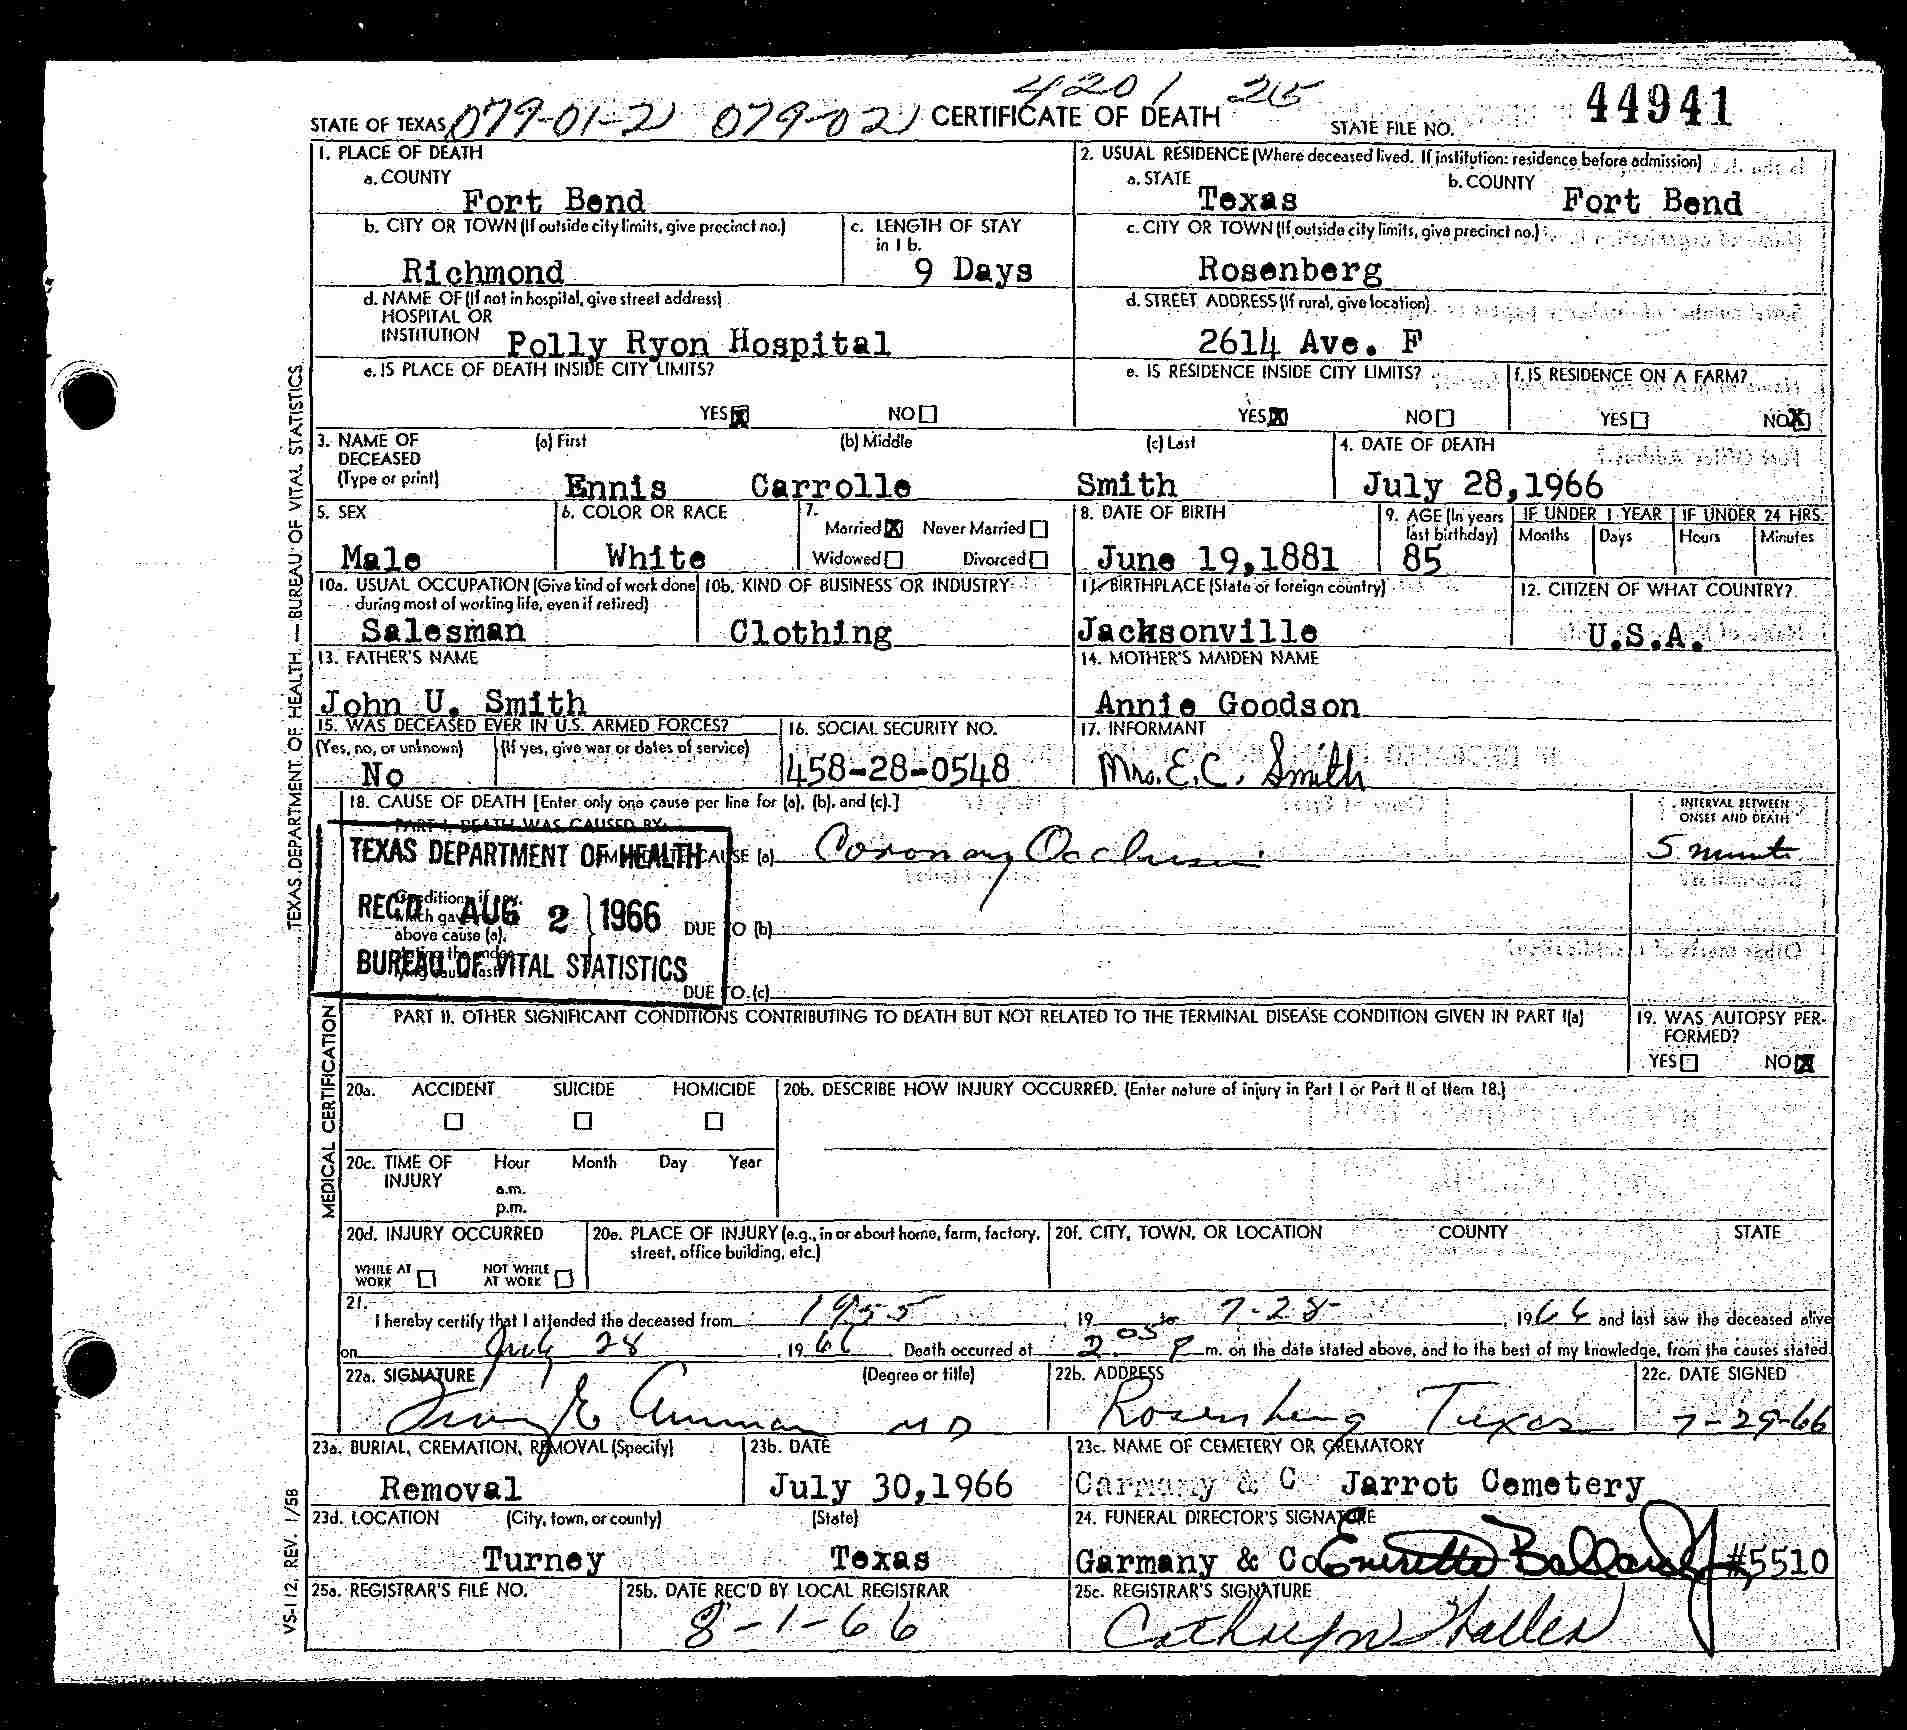 4201 215
STATE OF TEXAS 079-01-2 079-02 CERTIFICATE OF DEATH STATE FILE NO. 44941
1. PLACE OF DEATH
a. COUNTY
Fort Bend
2. USUAL RESIDENCE (Where deceased lived. If institution: residence before admission)
a. STATE b. COUNTY
Texas Fort Bend
b. CITY OR TOWN (If outside city limits, give precinct no.)
Richmond
c. LENGTH OF STAY
in 1 b.
9 Days
c. CITY OR TOWN (If outside city limits, give precinct no.)
Rosenberg
d. NAME OF (If not in hospital, give street address)
HOSPITAL OR
INSTITUTION Polly Ryon Hospital
d. STREET ADDRESS (If rural, give location)
2614 Ave. F
e. IS PLACE OF DEATH INSIDE CITY LIMITS?
YES X NO
e. IS RESIDENCE INSIDE CITY LIMITS?
YES X NO
f. IS RESIDENCE ON A FARM?
YES NO X
3. NAME OF (a) First (b) Middle (c) Last
DECEASED
(Type or print) Ennis Carrolle Smith
4. DATE OF DEATH
July 28,1966
5. SEX
Male
6. COLOR OR RACE
White
7.
Married X Never Married
Widowed Divorced
8. DATE OF BIRTH
June 19,1881
9. AGE (In years
last birthday)
85
IF UNDER 1 YEAR IF UNDER 24 HRS.
Months Days Hours Minutes
10a. USUAL OCCUPATION (Give kind of work done
during most of working life, even if retired)
Salesman
10b. KIND OF BUSINESS OR INDUSTRY
Clothing
11. BIRTHPLACE (State or foreign country)
Jacksonville
12. CITIZEN OF WHAT COUNTRY?
U.S.A.
13. FATHER'S NAME
John U. Smith
14. MOTHER'S MAIDEN NAME
Annie Goodson
15. WAS DECEASED EVER IN U.S. ARMED FORCES?
(Yes, no, or unknown) (If yes, give war or dates of service)
No
16. SOCIAL SECURITY NO.
458-28-0548
17. INFORMANT
Mrs. E.C. Smith
18. CAUSE OF DEATH [Enter only one cause per line for (a), (b), and (c).]
PART I. DEATH WAS CAUSED BY:
CAUSE (a) Coronary Occlusion
INTERVAL BETWEEN
ONSET AND DEATH
5 minutes
TEXAS DEPARTMENT OF HEALTH
REC'D AUG 2 1966
BUREAU OF VITAL STATISTICS
above cause (a),
DUE TO (b)
DUE TO (c)
PART II. OTHER SIGNIFICANT CONDITIONS CONTRIBUTING TO DEATH BUT NOT RELATED TO THE TERMINAL DISEASE CONDITION GIVEN IN PART I(a)
19. WAS AUTOPSY PER-
FORMED?
YES NO X
20a. ACCIDENT SUICIDE HOMICIDE
20b. DESCRIBE HOW INJURY OCCURRED. (Enter nature of injury in Part I or Part II of Item 18.)
20c. TIME OF Hour Month Day Year
INJURY
a.m.
p.m.
20d. INJURY OCCURRED
WHILE AT
WORK
NOT WHILE
AT WORK
20e. PLACE OF INJURY (e.g., in or about home, farm, factory,
street, office building, etc.)
20f. CITY, TOWN, OR LOCATION COUNTY STATE
21.
I hereby certify that I attended the deceased from 1955, 19 to 7-28-, 1966 and last saw the deceased alive
on July 28, 1966. Death occurred at 2:05 P m. on the date stated above, and to the best of my knowledge, from the causes stated.
22a. SIGNATURE (Degree or title)
MD
22b. ADDRESS
Rosenberg Texas
22c. DATE SIGNED
7-29-66
23a. BURIAL, CREMATION, REMOVAL (Specify)
Removal
23b. DATE
July 30,1966
23c. NAME OF CEMETERY OR CREMATORY
Garmany & C Jarrot Cemetery
23d. LOCATION (City, town, or county) (State)
Turney Texas
24. FUNERAL DIRECTOR'S SIGNATURE
Garmany & Co Everette Ballard Jr #5510
25a. REGISTRAR'S FILE NO.
25b. DATE REC'D BY LOCAL REGISTRAR
8-1-66
25c. REGISTRAR'S SIGNATURE
TEXAS DEPARTMENT OF HEALTH — BUREAU OF VITAL STATISTICS
MEDICAL CERTIFICATION
VS-112, REV. 1/58